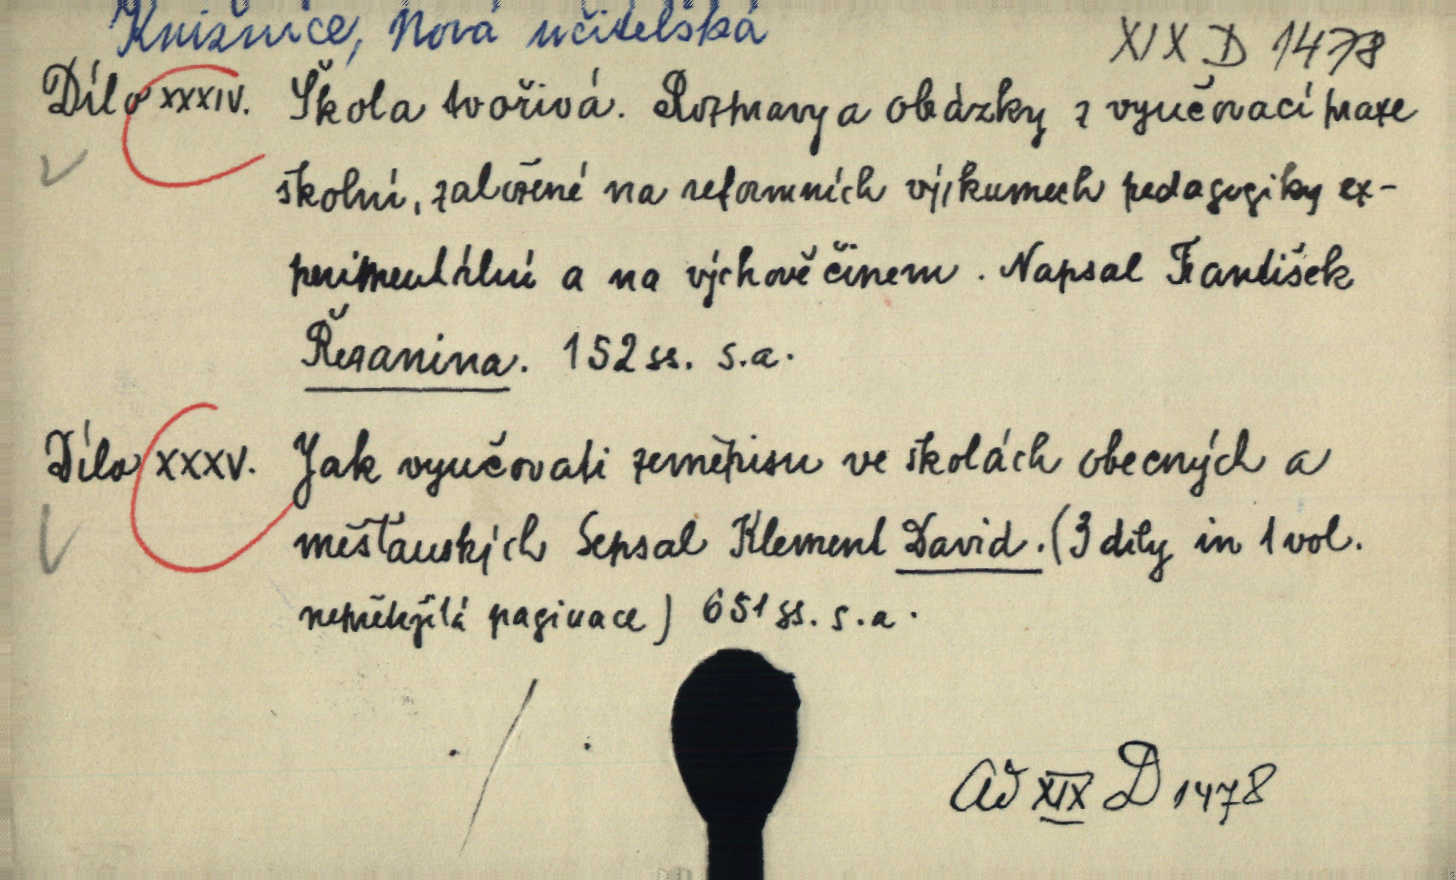 Knižnice, Nová učitelská
XIX D 1478
Dílo XXXIV. Škola tvořivá. Rozpravy a obrázky z vyučovací praxe
školní, založené na reformních výzkumech pedagogiky ex-
perimentální a na výchově činem. Napsal František
Řezanina. 152 ss. s.a.
Dílo XXXV. Jak vyučovati zeměpisu ve školách obecných a
měšťanských Sepsal Klement David. (3 díly in 1 vol.
nepřetržitá paginace) 651 ss. s.a.
Ad XIX D 1478